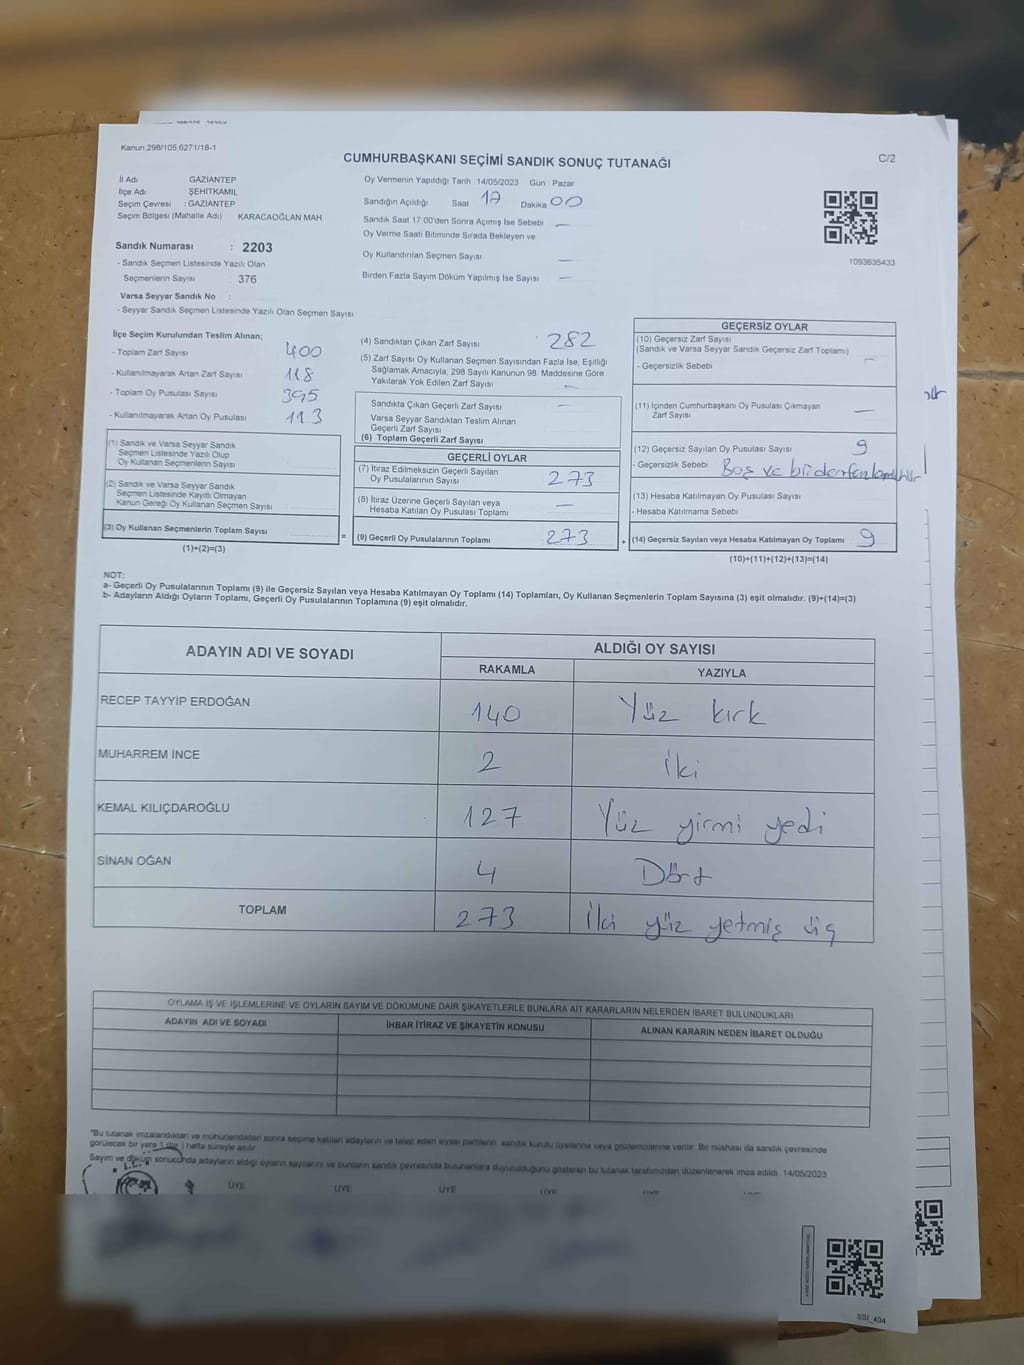 Kanun:298/105,6271/18-1
CUMHURBAŞKANI SEÇİMİ SANDIK SONUÇ TUTANAĞI
C/2
İl Adı GAZİANTEP
İlçe Adı ŞEHİTKAMİL
Seçim Çevresi : GAZİANTEP
Seçim Bölgesi (Mahalle Adı) KARACAOĞLAN MAH
Sandık Numarası : 2203
- Sandık Seçmen Listesinde Yazılı Olan
Seçmenlerin Sayısı : 376
Varsa Seyyar Sandık No :
- Seyyar Sandık Seçmen Listesinde Yazılı Olan Seçmen Sayısı
Oy Vermenin Yapıldığı Tarih :14/05/2023 Gün : Pazar
Sandığın Açıldığı Saat 17 Dakika 00
Sandık Saat 17:00'den Sonra Açımış İse Sebebi —
Oy Verme Saati Bitiminde Sırada Bekleyen ve
Oy Kullandırılan Seçmen Sayısı —
Birden Fazla Sayım Döküm Yapılmış İse Sayısı —
1093635433
İlçe Seçim Kurulundan Teslim Alınan;
- Toplam Zarf Sayısı 400
- Kullanılmayarak Artan Zarf Sayısı 118
- Toplam Oy Pusulası Sayısı 395
- Kullanılmayarak Artan Oy Pusulası 113
(1) Sandık ve Varsa Seyyar Sandık
Seçmen Listesinde Yazılı Olup
Oy Kullanan Seçmenlerin Sayısı
(2) Sandık ve Varsa Seyyar Sandık
Seçmen Listesinde Kayıtlı Olmayan
Kanun Gereği Oy Kullanan Seçmen Sayısı
(3) Oy Kullanan Seçmenlerin Toplam Sayısı
(1)+(2)=(3)
=
(4) Sandıktan Çıkan Zarf Sayısı 282
(5) Zarf Sayısı Oy Kullanan Seçmen Sayısından Fazla İse, Eşitliği
Sağlamak Amacıyla, 298 Sayılı Kanunun 98. Maddesine Göre
Yakılarak Yok Edilen Zarf Sayısı —
Sandıkta Çıkan Geçerli Zarf Sayısı —
Varsa Seyyar Sandıktan Teslim Alınan
Geçerli Zarf Sayısı
(6) Toplam Geçerli Zarf Sayısı
GEÇERLİ OYLAR
(7) İtiraz Edilmeksizin Geçerli Sayılan
Oy Pusulalarının Sayısı 273
(8) İtiraz Üzerine Geçerli Sayılan veya
Hesaba Katılan Oy Pusulası Toplamı —
(9) Geçerli Oy Pusulalarının Toplamı 273
+
GEÇERSİZ OYLAR
(10) Geçersiz Zarf Sayısı
(Sandık ve Varsa Seyyar Sandık Geçersiz Zarf Toplamı) —
- Geçersizlik Sebebi
(11) İçinden Cumhurbaşkanı Oy Pusulası Çıkmayan
Zarf Sayısı —
(12) Geçersiz Sayılan Oy Pusulası Sayısı 9
- Geçersizlik Sebebi Boş ve birden fazla
(13) Hesaba Katılmayan Oy Pusulası Sayısı
- Hesaba Katılmama Sebebi
(14) Geçersiz Sayılan veya Hesaba Katılmayan Oy Toplamı 9
(10)+(11)+(12)+(13)=(14)
NOT:
a- Geçerli Oy Pusulalarının Toplamı (9) ile Geçersiz Sayılan veya Hesaba Katılmayan Oy Toplamı (14) Toplamları, Oy Kullanan Seçmenlerin Toplam Sayısına (3) eşit olmalıdır. (9)+(14)=(3)
b- Adayların Aldığı Oyların Toplamı, Geçerli Oy Pusulalarının Toplamına (9) eşit olmalıdır.
ADAYIN ADI VE SOYADI ALDIĞI OY SAYISI
RAKAMLA YAZIYLA
RECEP TAYYİP ERDOĞAN 140 Yüz kırk
MUHARREM İNCE 2 İki
KEMAL KILIÇDAROĞLU 127 Yüz yirmi yedi
SİNAN OĞAN 4 Dört
TOPLAM 273 İki yüz yetmiş üç
OYLAMA İŞ VE İŞLEMLERİNE VE OYLARIN SAYIM VE DÖKÜMÜNE DAİR ŞİKAYETLERLE BUNLARA AİT KARARLARIN NELERDEN İBARET BULUNDUKLARI
ADAYIN ADI VE SOYADI İHBAR İTİRAZ VE ŞİKAYETİN KONUSU ALINAN KARARIN NEDEN İBARET OLDUĞU
*Bu tutanak imzalandıktan ve mühürlendikten sonra seçime katılan adayların ve talep eden siyasi partilerin sandık kurulu üyelerine veya gözlemcilerine verilir. Bir nüshası da sandık çevresinde
görülecek bir yere 1 (bir) hafta süreyle asılır
Sayım ve döküm sonucunda adayların aldığı oyların sayılarını ve bunların sandık çevresinde bulunanlara duyurulduğunu gösteren bu tutanak tarafımızdan düzenlenerek imza edildi. 14/05/2023
ÜYE ÜYE ÜYE ÜYE
SSİ_404